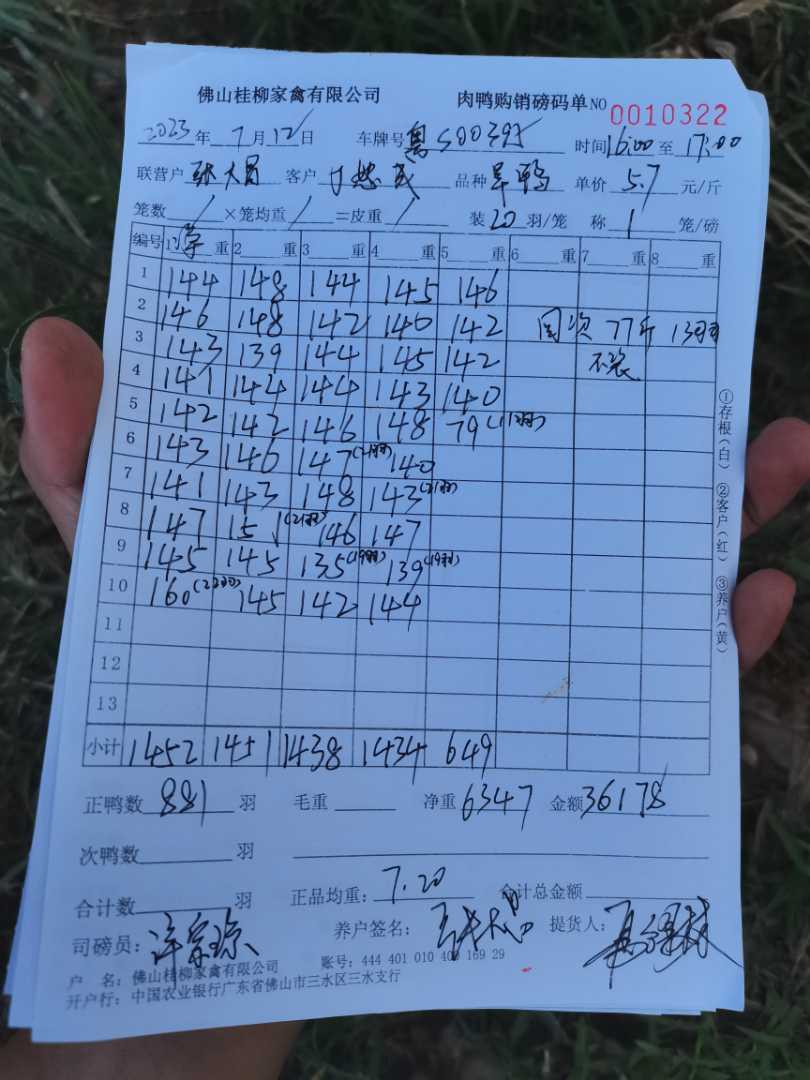 佛山桂柳家禽有限公司 肉鸭购销磅码单 NO 0010322
2023年 7月 12日 车牌号 粤S00395 时间 16:00 至 17:00
联营户 客户 品种 单价 5.7 元/斤
笼数 / ×笼均重 / =皮重 / 装 20 羽/笼 称 1 笼/磅
编号 1 净 重 2 重 3 重 4 重 5 重 6 重 7 重 8 重
1 144 148 144 145 146
2 146 148 142 140 142 77斤 13羽
3 143 139 144 145 142 不装
4 141 144 144 143 140
5 142 142 146 148 79(11羽)
6 143 146 147(21羽) 140
7 141 143 148 143(21羽)
8 147 151(21羽) 146 147
9 145 145 135(19羽) 139(19羽)
10 160(22羽) 145 142 144
11
12
13
小计 1452 1451 1438 1434 649
正鸭数 881 羽 毛重 净重 6347 金额 36178
次鸭数 羽
合计数 羽 正品均重： 7.20 合计总金额
司磅员： 养户签名： 提货人：
户 名：佛山桂柳家禽有限公司 账号：444 401 010 400 169 29
开户行：中国农业银行广东省佛山市三水区三水支行
①存根（白） ②客户（红） ③养户（黄）